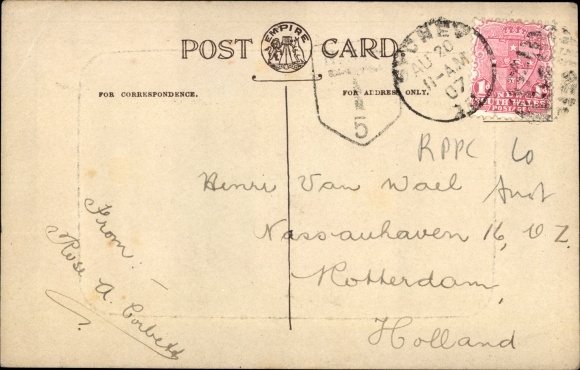 POST CARD.
EMPIRE
FOR CORRESPONDENCE.
FOR ADDRESS ONLY.
SYDNEY
AU 20
11-AM
07
1d
NEW
SOUTH WALES
POSTAGE
5
RPPC
Henri Van Wael
Nassauhaven 16, O Z.
Rotterdam,
Holland
From:—
Rose A. Corbett